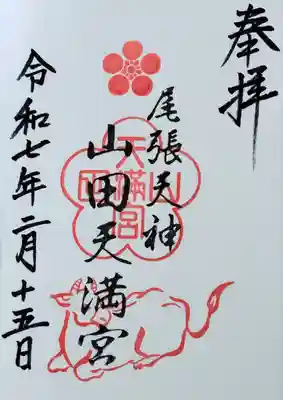 奉拝
尾張天神
山田天満宮
令和七年二月十五日
山田天満宮